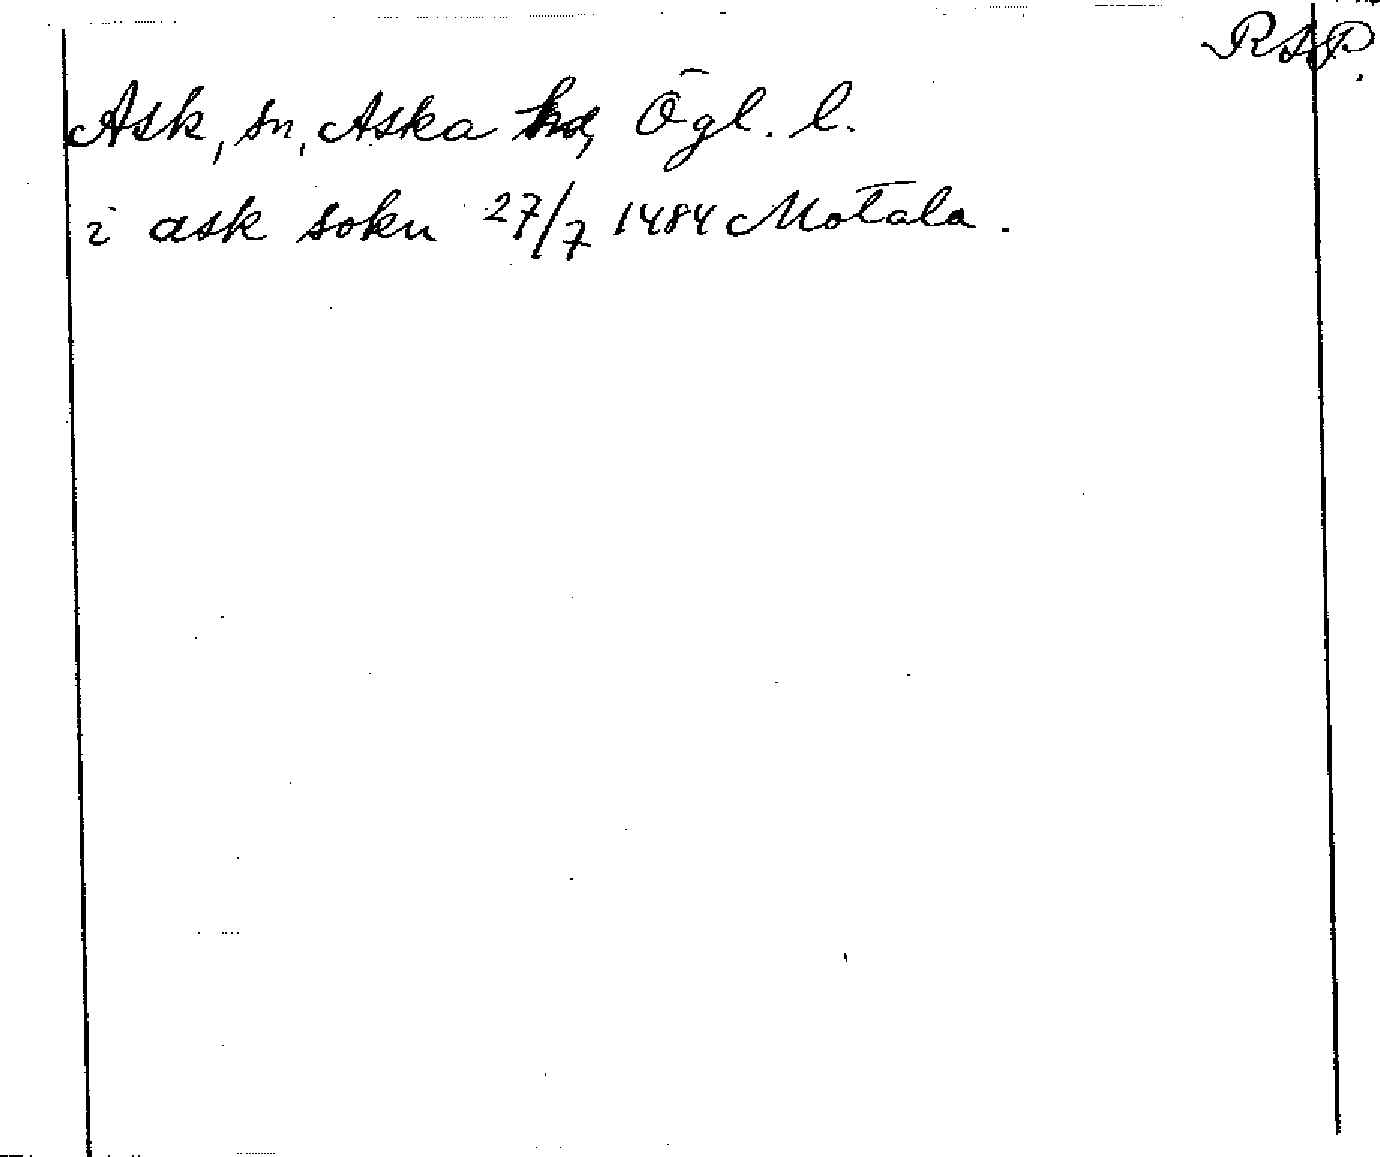 RAP.
Ask, sn, Aska hd, Ögl. l.
i ask sokn 27/7 1484 Motala.